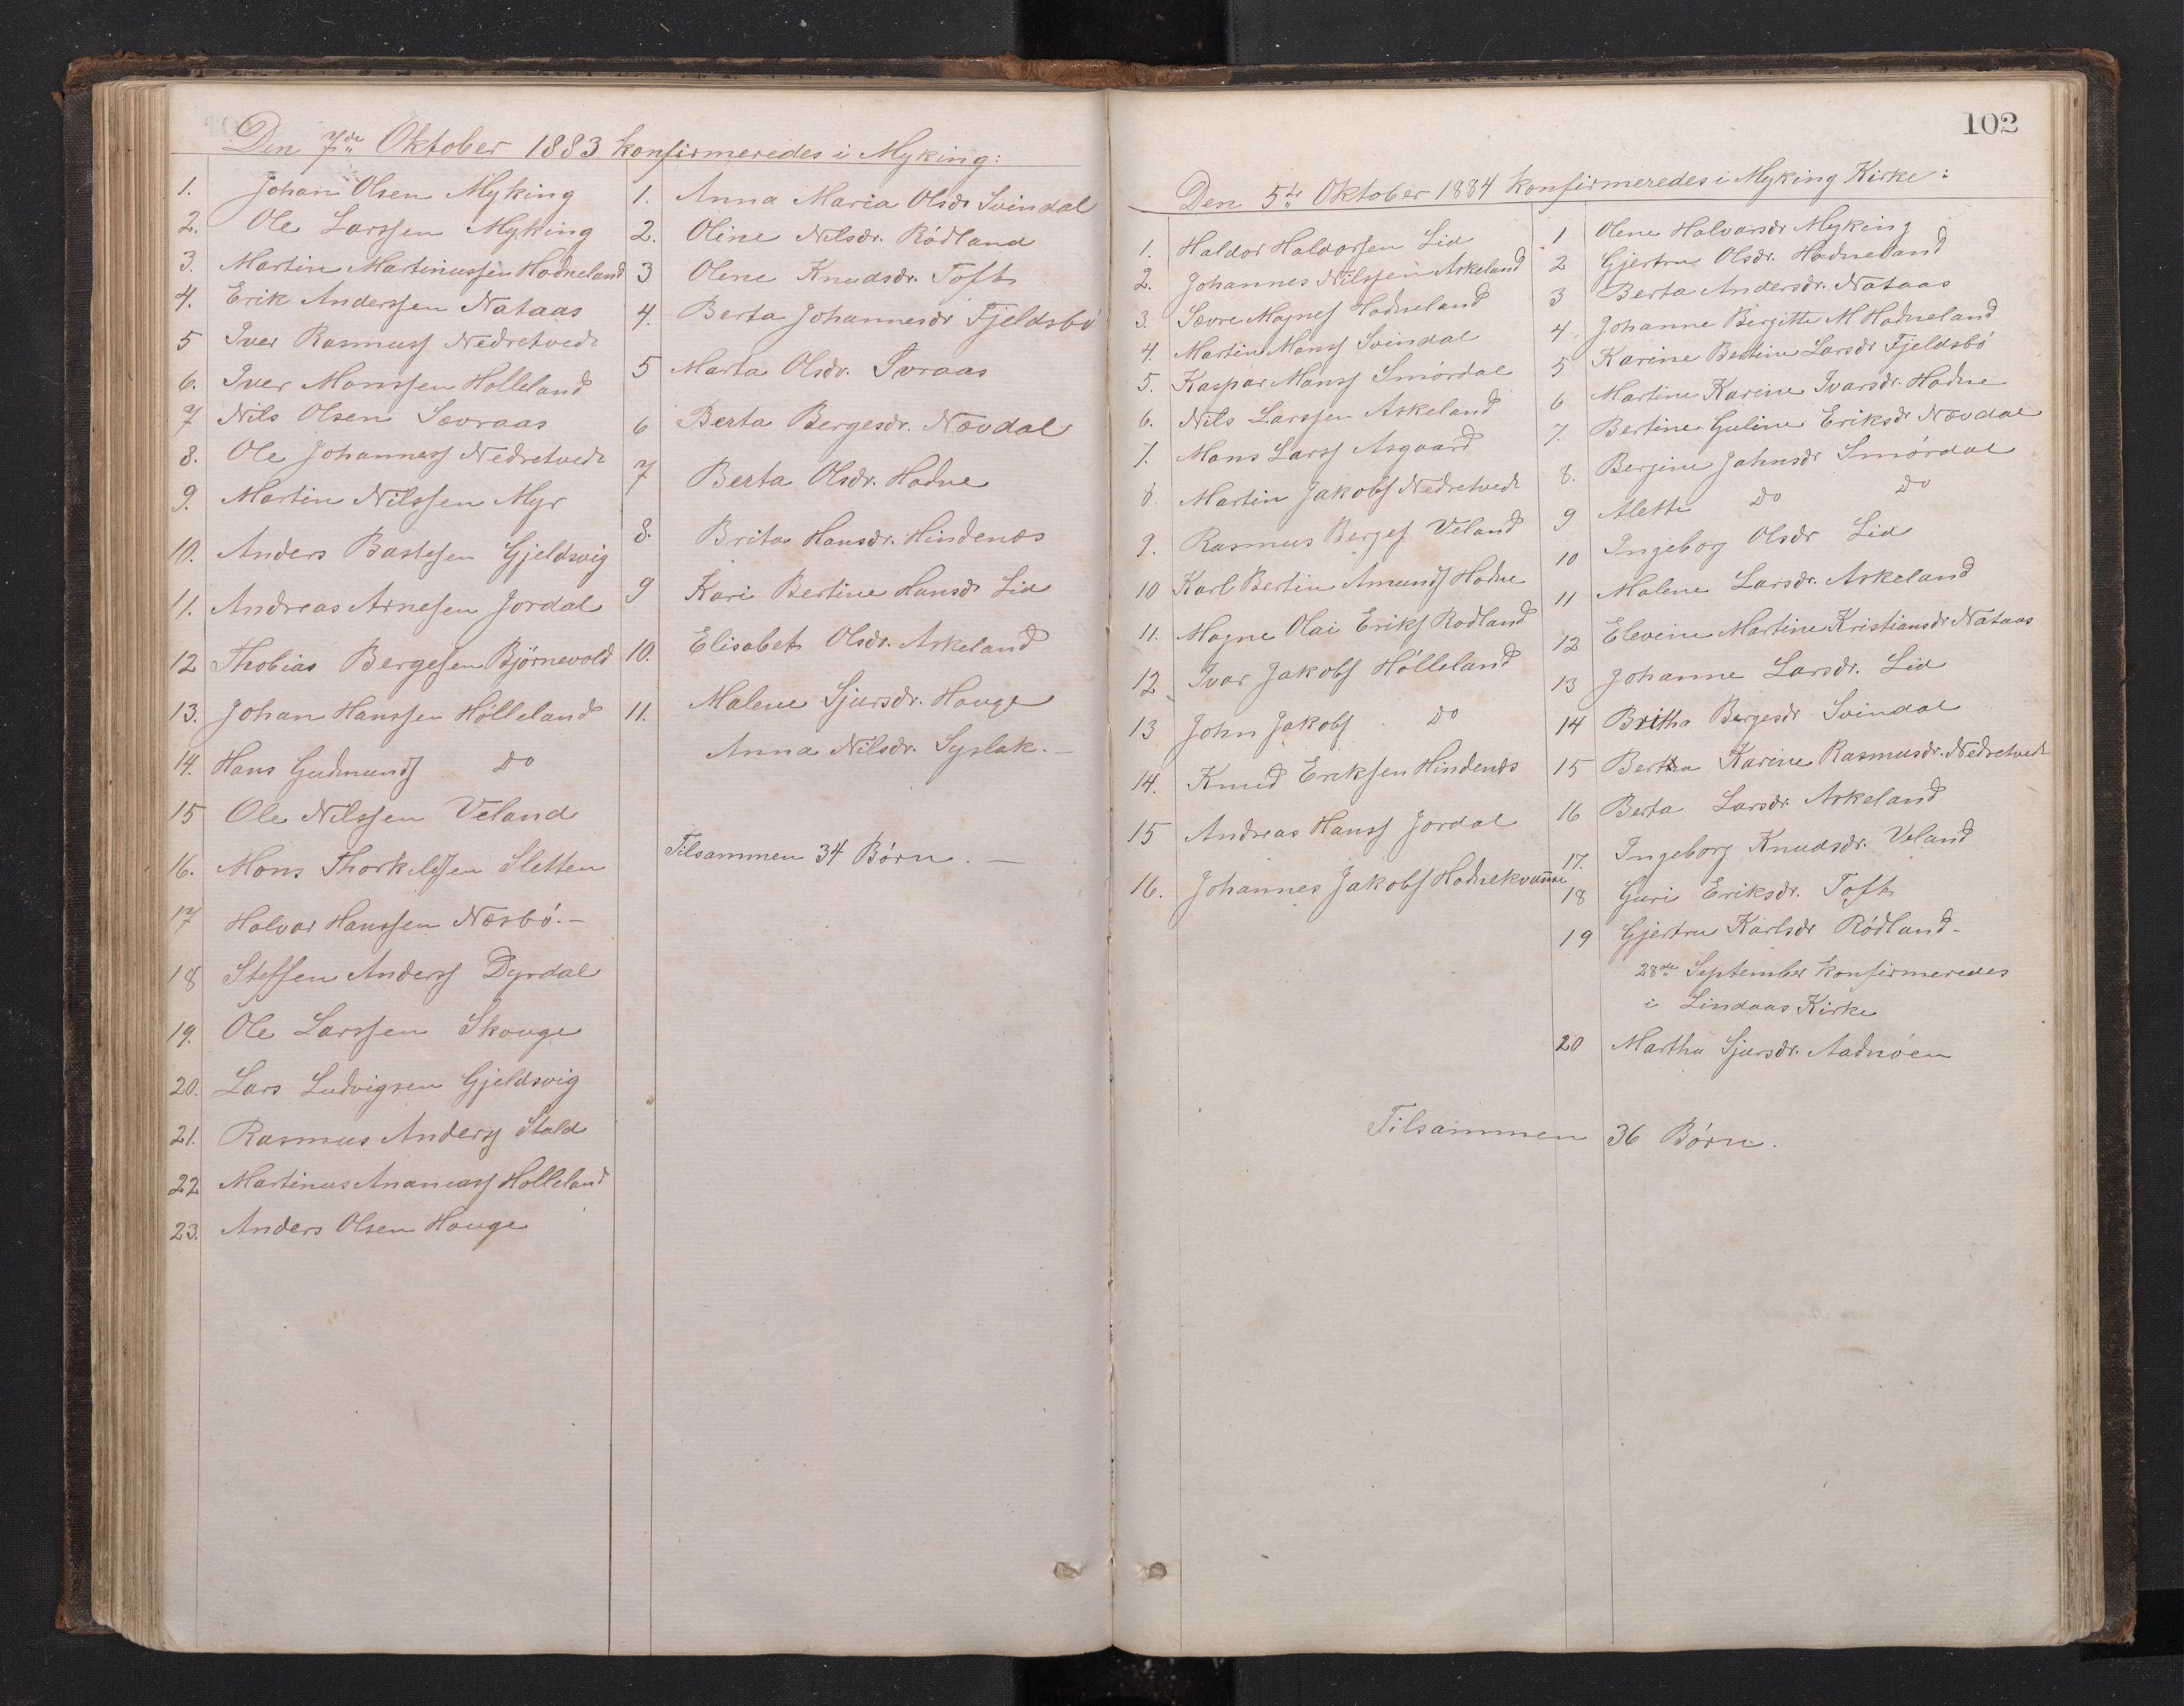 Den 7de Oktober 1883 konfirmeredes i Myking:
1. Johan Olsen Myking
2. Ole Larssen Myking
3. Martin Martinussen Hodneland
4. Erik Anderssen Nataas
5 Iver Rasmuss Nedretvedt
6. Iver Monssen Holleland
7 Nils Olsen Sævraas
8. Ole Johanness Nedretvedt
9. Martin Nilssen Myr
10. Anders Bastesen Gjeldsvig
11. Andreas Arnesen Jordal
12 Thobias Bergesen Björnevold
13. Johan Hanssen Hólleland
14. Hans Gudmunds Do
15 Ole Nilssen Veland
16. Mons Thorkelssen Sletten
17 Halvor Hanssen Næsbó.-
18 Steffen Anderss Dyrdal
19. Ole Larssen Skouge
20. Lars Ludvigsen Gjeldsvig
21. Rasmus Anderss Stald
22 Martinus Ananiass Holleland
23. Anders Olsen Houge
1. Anna Maria Olsdr Svindal
2. Oline Nilsdr. Ródland
3 Olene Knudsdr. Toft
4. Berta Johannesdr Fjeldsbó
5 Marta Olsdr. Sævraas
6 Berta Bergesdr. Nævdal
7 Berta Olsdr. Hodne
8. Brita Hansdr. Hindenes
9 Kari Bertine Hansdr Lid
10. Elisabet Olsdr. Askeland
11. Malene Sjursdr. Houge
Anna Nilsdr. Syslak.-
Tilsammen 34 Børn.-
102
Den 5te Oktober 1884 konfirmeredes i Myking Kirke:
1. Haldor Haldorsen Lid
2. Johannes Nilssen Askeland
3. Sævre Magnes Hodneland
4. Martin Monss Svindal
5. Kaspar Monss Smórdal
6. Nils Larssen Askeland
7. Mons Larss Asgaard
8. Martin Jakobs Nedretvedt
9. Rasmus Berges Veland
10 Karl Bertin Amunds Hodne
11. Magne Olai Eriks Rodland
12 Ivar Jakobs Hólleland
13 John Jakobs Do
14. Knud Eriksen Hindenes
15 Andreas Hanss Jordal
16. Johannes Jakobs Hodnekvamme
1 Olene Halvorsdr Myking
2 Gjertru Olsdr. Hodneland
3 Berta Andersdr. Nataas
4 Johanne Bergitte M Hodneland
5 Karine Bertine Larsdr Fjeldsbó
6 Martine Karine Ivarsdr. Hodne
7. Bertine Guline Eriksdr Nævdal
8. Bergine Johnsdr Smórdal
9 Alette Do Do
10 Ingeborg Olsdr Lid
11 Malene Larsdr. Askeland
12 Elevine Martine Kristiansdr Nataas
13 Johanne Larsdr. Lid
14 Britha Bergesdr Svindal
15 Bertha Karine Rasmusdr. Nedretvedt
16 Berta Larsdr. Askeland
17. Ingeborg Knudsdr. Veland
18 Guri Eriksdr. Toft
19 Gjertru Karlsdr Ródland-
28de September konfirmeredes
i Lindaas Kirke
20 Martha Sjursdr. Aadnóen
Tilsammen 36 Børn.